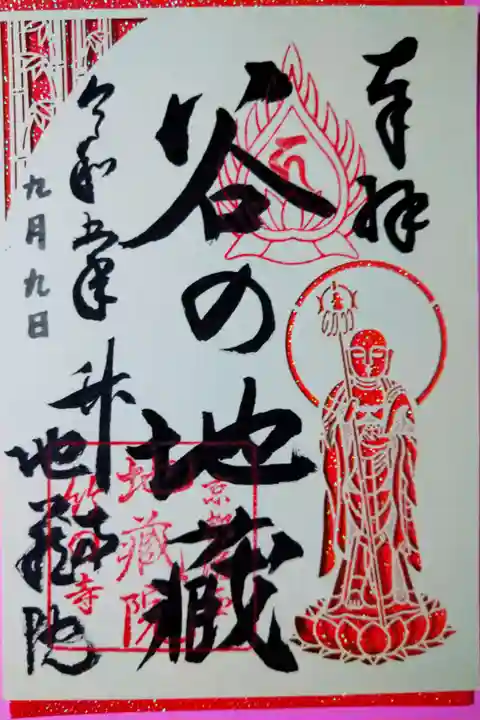 奉拝
谷の地蔵
令和五年
九月九日
竹寺
地蔵院
京都
地蔵院
竹の寺